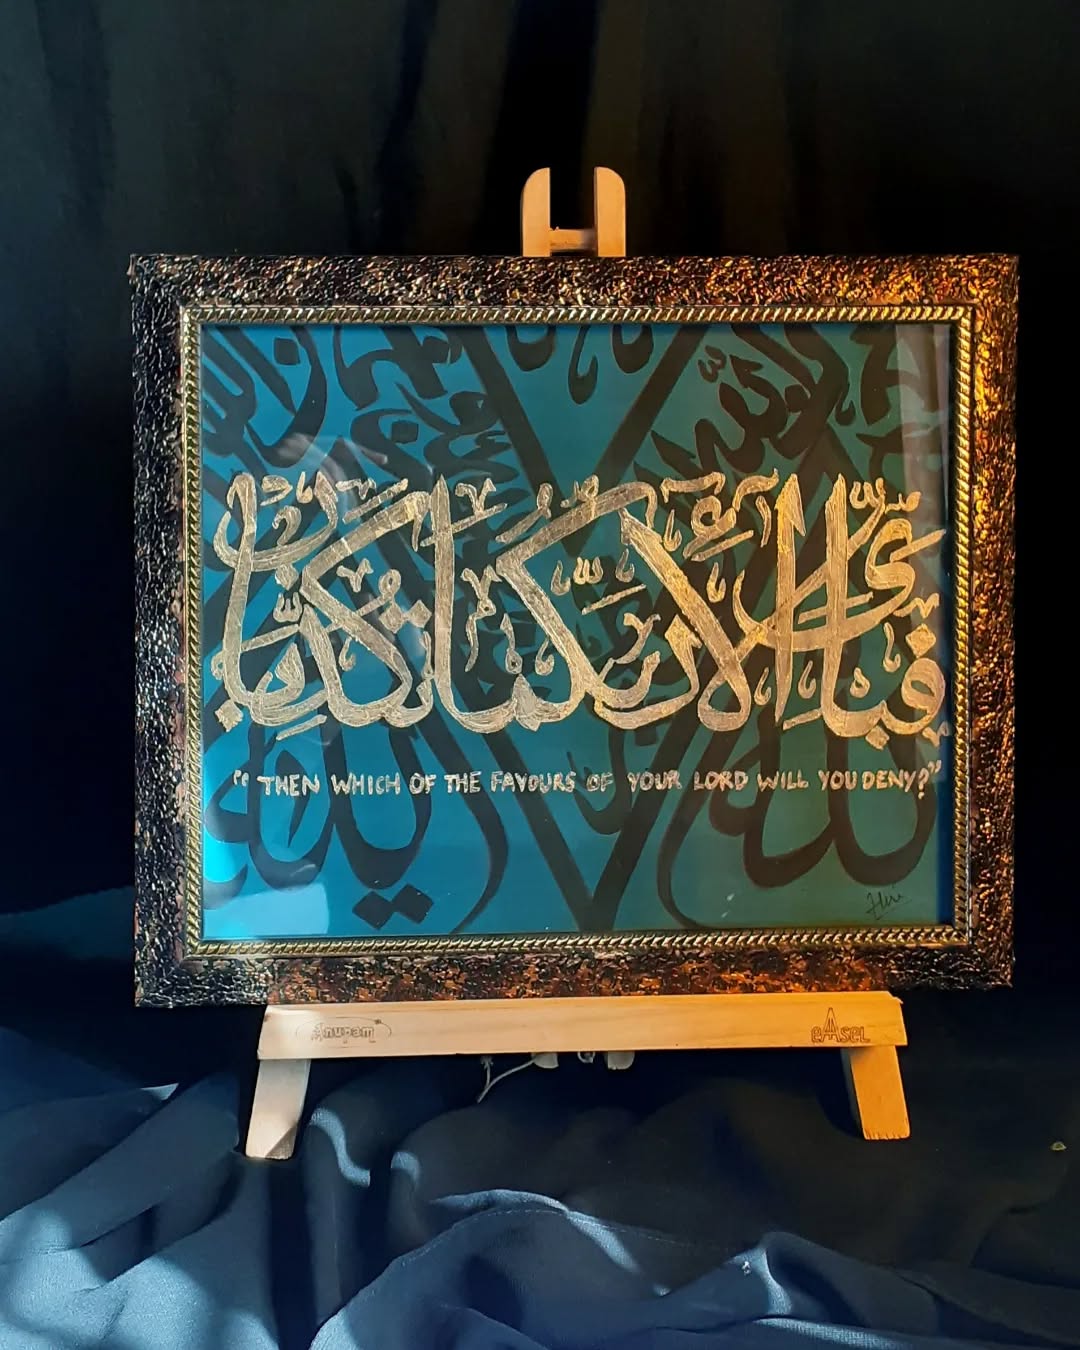 فَبِأَيِّ آلَاءِ رَبِّكُمَا تُكَذِّبَانِ
“THEN WHICH OF THE FAVOURS OF YOUR LORD WILL YOU DENY?”
Anupam
eAsel